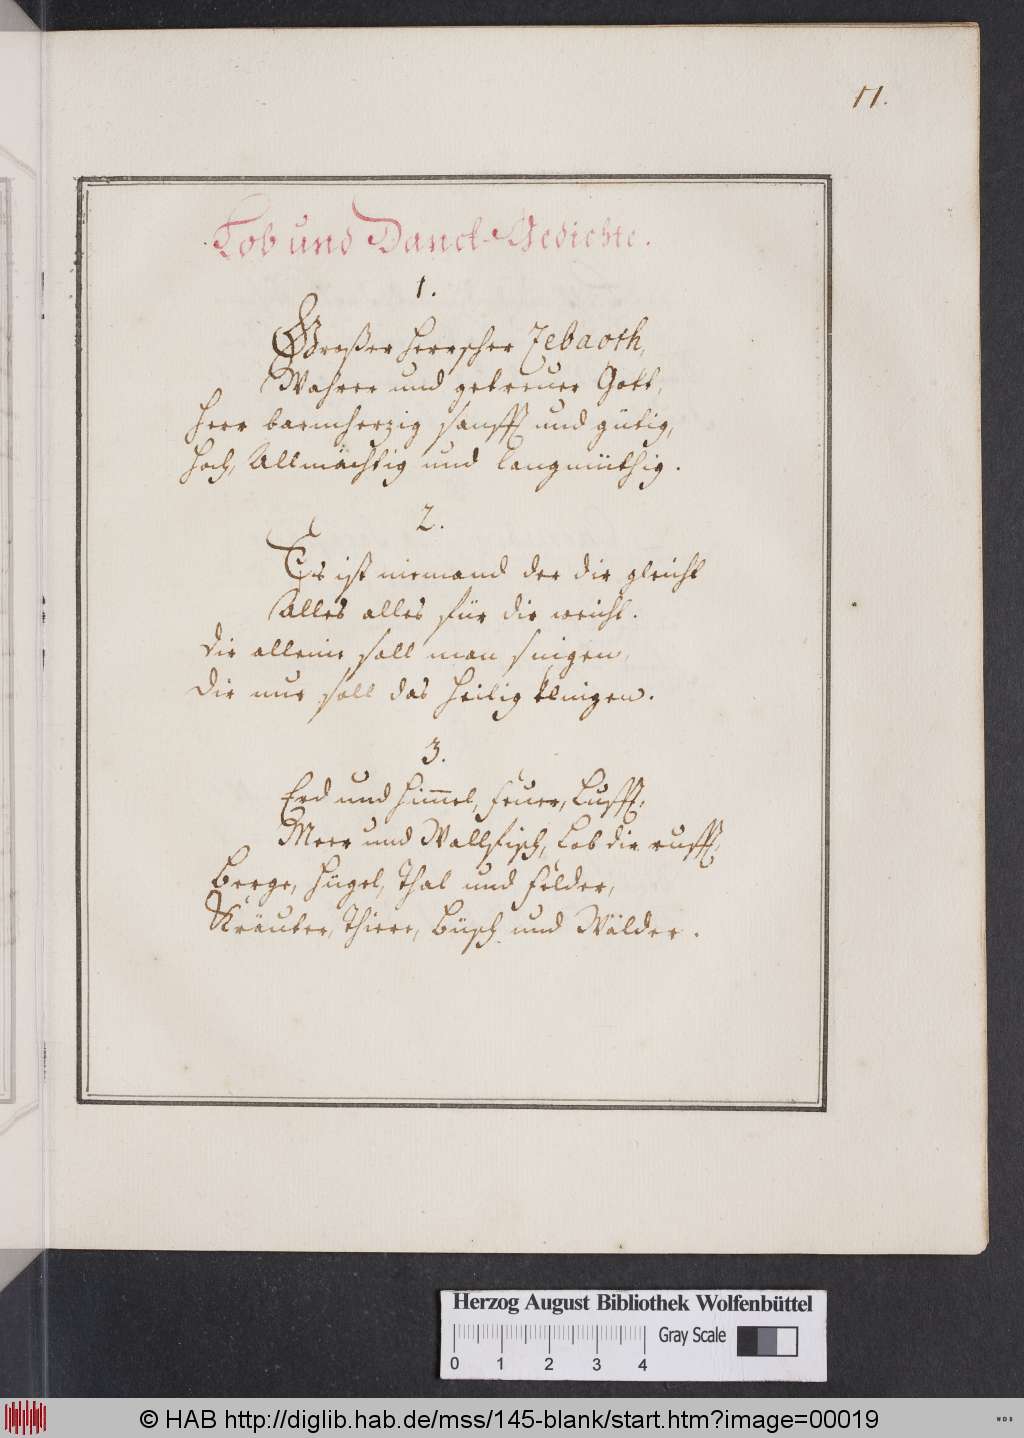 11.
Lob und Danck-Gedichte.
1.
Großer Herrscher Zebaoth,
Wahrer und getreuer Gott,
Herr barmherzig sanfft und gütig,
Hoch, Allmächtig und langmüthig.
2.
Es ist niemand der dir gleicht
Alles alles für dir weicht.
Dir alleine soll man singen,
Dir nur soll das Heilig klingen.
3.
Erd und Himmel, Feuer, Lufft,
Meer und Wallfisch, Lob dir rufft,
Berge, Hügel, Thal und Felder,
Kräuter, Thiere, Büsch und Wälder.
Herzog August Bibliothek Wolfenbüttel
Gray Scale
0 1 2 3 4
© HAB http://diglib.hab.de/mss/145-blank/start.htm?image=00019